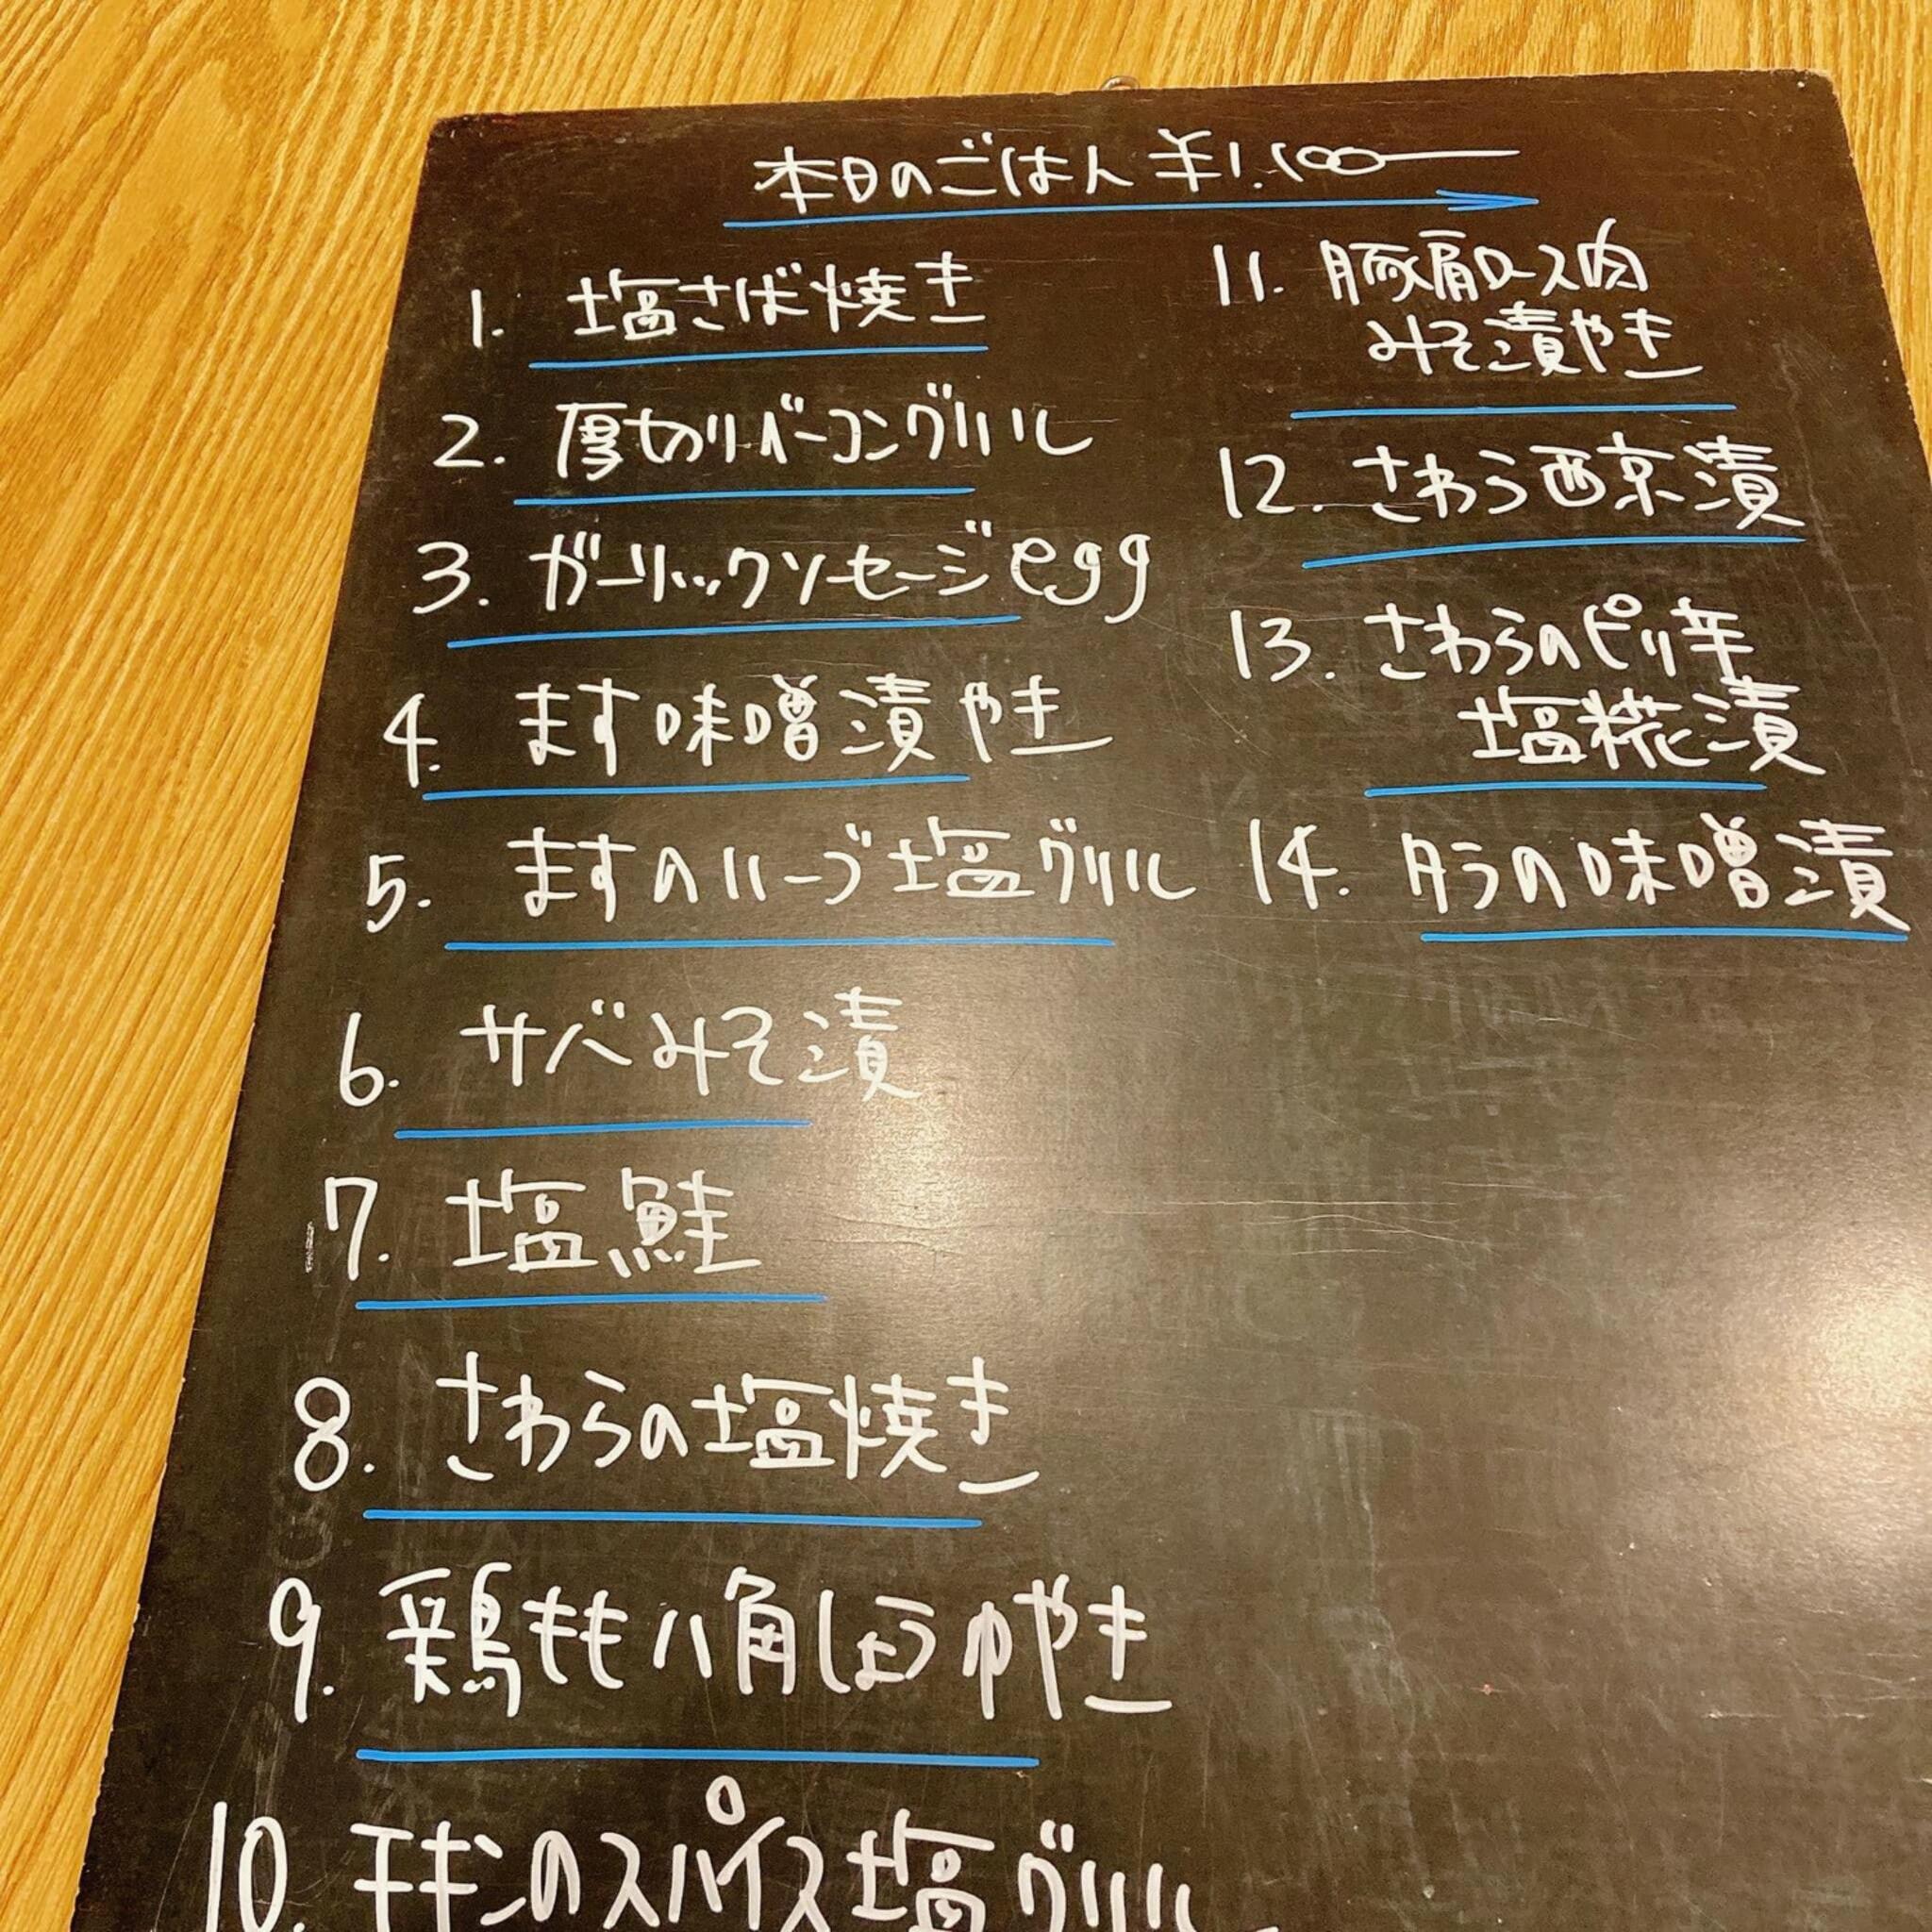 本日のごはん ¥1.100ー
1. 塩さば焼き
2. 厚切りベーコングリル
3. ガーリックソーセージegg
4. ます味噌漬やき
5. ますのハーブ塩グリル
6. サバみそ漬
7. 塩鮭
8. さわらの塩焼き
9. 鶏もも八角しょうゆやき
10. チキンのスパイス塩グリル
11. 豚肩ロース肉
みそ漬やき
12. さわら西京漬
13. さわらのピリ辛
塩糀漬
14. タラの味噌漬